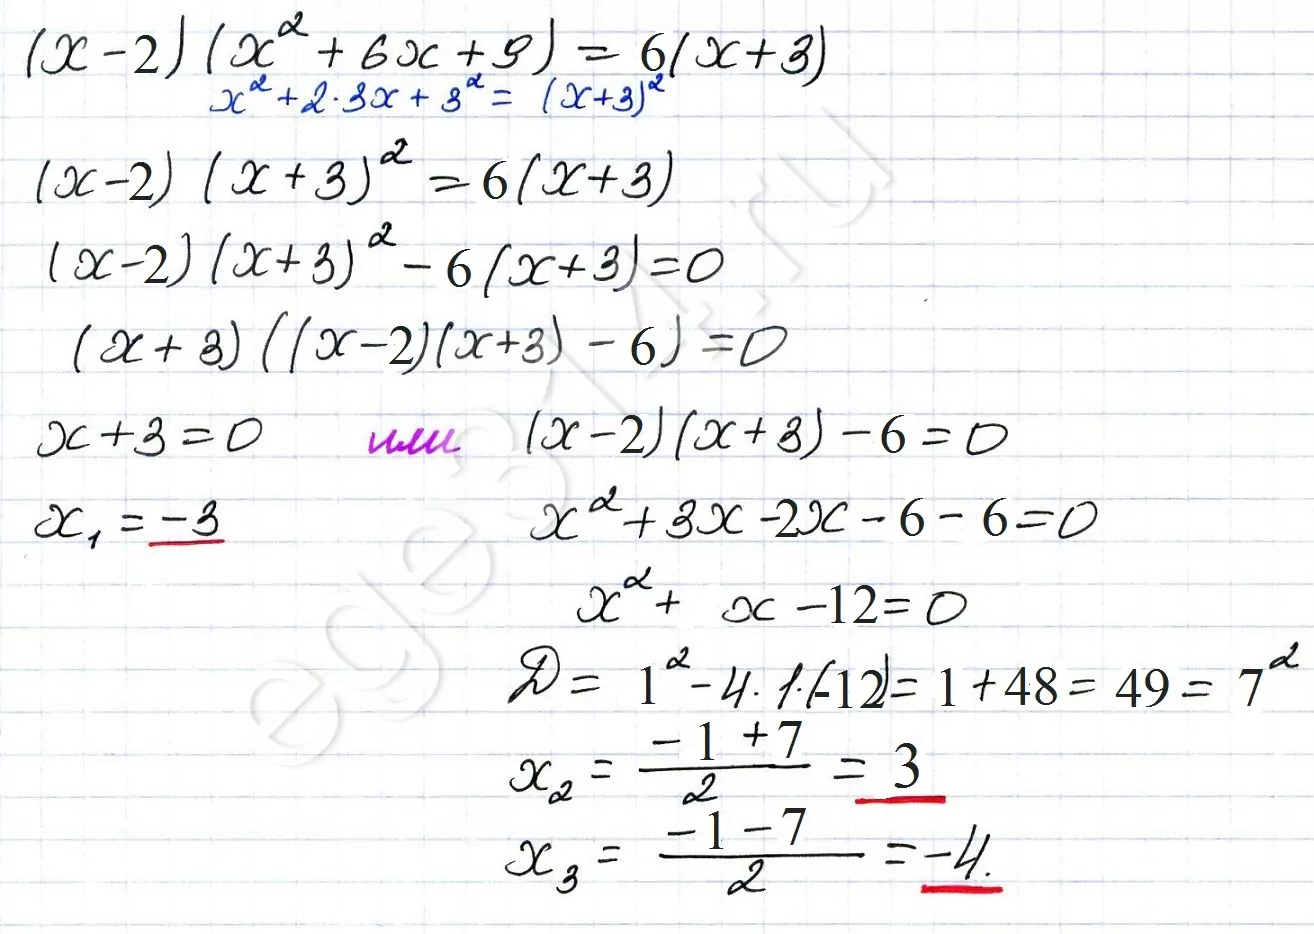 (x-2)(x²+6x+9)=6(x+3)
x²+2·3x+3²=(x+3)²
(x-2)(x+3)²=6(x+3)
(x-2)(x+3)²-6(x+3)=0
(x+3)((x-2)(x+3)-6)=0
x+3=0 или (x-2)(x+3)-6=0
x₁=-3 x²+3x-2x-6-6=0
x²+ x-12=0
D=1²-4·1·(-12)=1+48=49=7²
x₂=(-1+7)/2=3
x₃=(-1-7)/2=-4.
ege314.ru